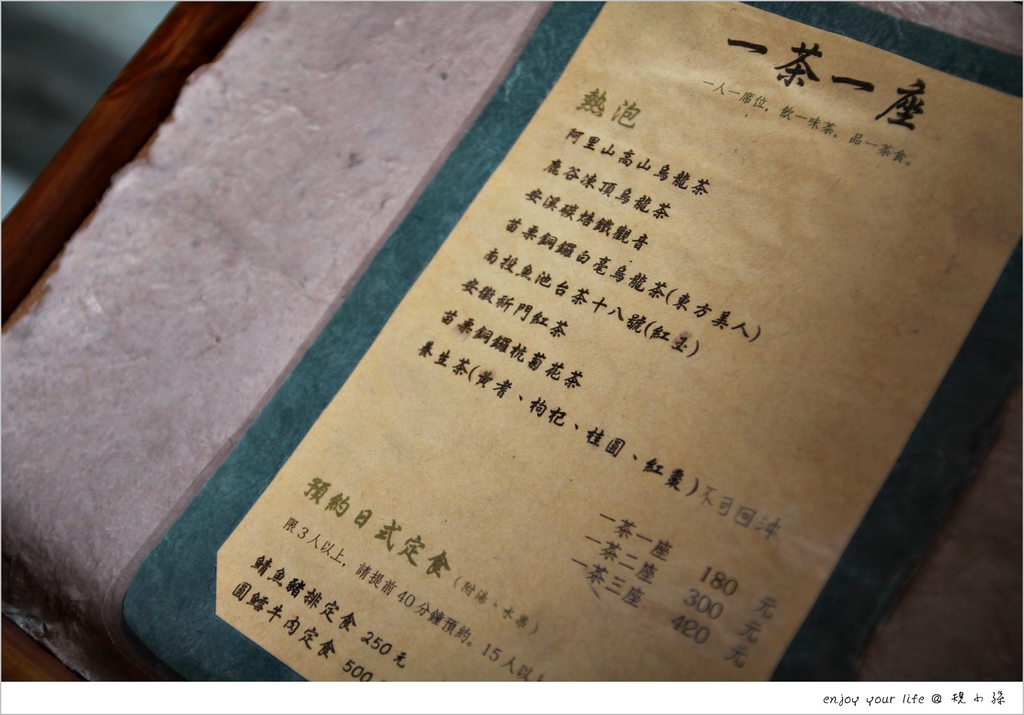 一茶一座
一人一席位，飲一味茶，品一茶食。
熱泡
阿里山高山烏龍茶
鹿谷凍頂烏龍茶
安溪碳焙鐵觀音
苗栗銅鑼白毫烏龍茶(東方美人)
南投魚池台茶十八號(紅玉)
安徽祈門紅茶
苗栗銅鑼杭菊花茶
養生茶(黃耆、枸杞、桂圓、紅棗)不可回沖
一茶一座 180 元
一茶二座 300 元
一茶三座 420 元
預約日式定食(附湯、水果)
限3人以上，請提前40分鐘預約。15人以
鯖魚豬排定食 250 元
圓鱈牛肉定食 500
enjoy your life @